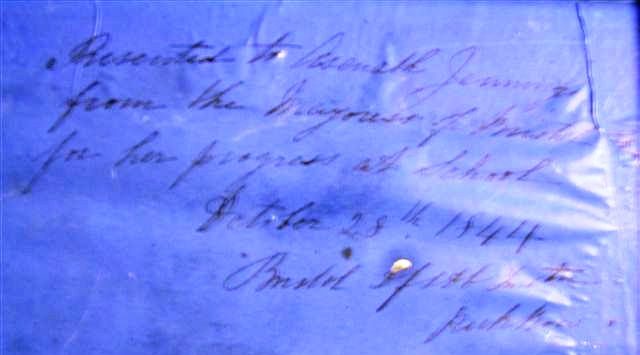 Presented to Asenath Jennings
from the Mayoress of Bristol
for her progress at School
October 28th 1844
Bristol